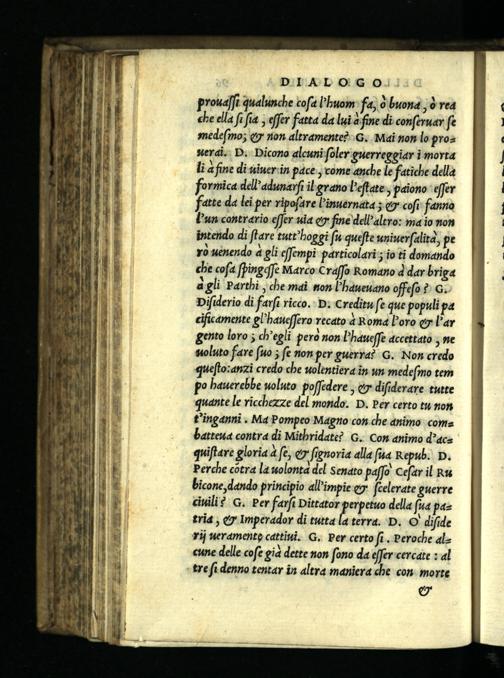 DIALOGO
prouaſsi qualunche coſa l'huom fa, ò buona, ò rea
che ella ſi ſia, eſſer fatta da lui à fine di conſeruar ſe
medeſmo; & non altramente? G. Mai non lo pro=
uerai. D. Dicono alcuni ſoler guerreggiar i morta
li à fine di uiuer in pace, come anche le fatiche della
formica dell'adunarſi il grano l'eſtate, paiono eſſer
fatte da lei per ripoſare l'inuernata; & coſi fanno
l'un contrario eſſer uia & fine dell'altro: ma io non
intendo di ſtare tutt'hoggi ſu queſte uniuerſalità, pe
rò uenendo à gli eſſempi particolari; io ti domando
che coſa ſpingeſſe Marco Craſſo Romano à dar briga
à gli Parthi, che mai non l'haueuano offeſo? G.
Diſiderio di farſi ricco. D. Creditu ſe que populi pa
cificamente gl'haueſſero recato à Roma l'oro & l'ar
gento loro; ch'egli però non l'haueſſe accettato, ne
uoluto fare ſuo; ſe non per guerra? G. Non credo
queſto: anzi credo che uolentiera in un medeſmo tem
po hauerebbe uoluto poſſedere, & diſiderare tutte
quante le ricchezze del mondo. D. Per certo tu non
t'inganni. Ma Pompeo Magno con che animo com=
batteua contra di Mithridate? G. Con animo d'ac=
quiſtare gloria à ſe, & ſignoria alla ſua Repub. D.
Perche cōtra la uolontà del Senato paſsò Ceſar il Ru
bicone, dando principio all'impie & ſcelerate guerre
ciuili? G. Per farſi Dittator perpetuo della ſua pa=
tria, & Imperador di tutta la terra. D. O' diſide
rij ueramente cattiui. G. Per certo ſi. Peroche al=
cune delle coſe già dette non ſono da eſſer cercate: al
tre ſi denno tentar in altra maniera che con morte
&